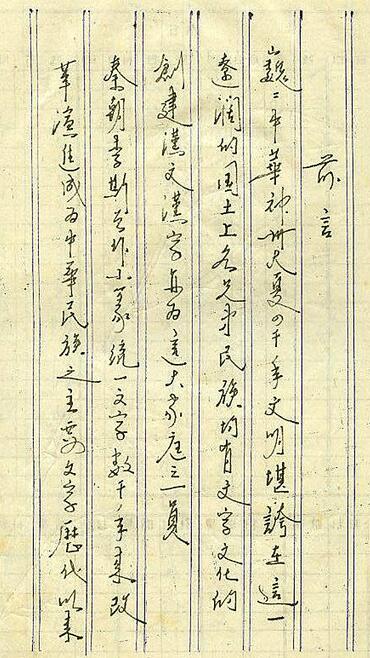 前言
巍巍中華神州大夏四千年文明堪誇在這一
遼闊的国土上各兄弟民族均有文字文化的
創建漢文漢字為這大家庭之一員
秦朝李斯小篆統一文字數千年来改
革演進成为中華民族之主要文字歷代以来